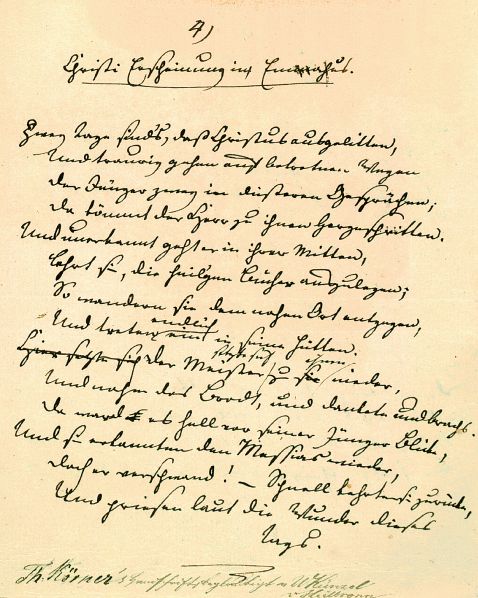 4)
Christi Erscheinung in Emmahus.
Zwey Tage sind's, daß Christus ausgelitten,
Und traurig gehen auf betretnen Wegen
Der Jünger zwey in düsteren Gesprächen;
Da kömmt der Herr zu ihnen hergeschritten.
Und unerkannt geht er in ihrer Mitten,
Lehrt sie, die heilgen Bücher auszulegen;
So wandern sie dem nahen Ort entgegen,
Und treten endlich ein in seine Hütten.
Hier setzte sich der Meister setzte sich zu sie ihnen nieder,
Und nahm das Brodt, und dankte und brachs.
Da ward es hell vor seiner Jünger Blicke,
Und sie erkannten den Messias wieder,
Doch er verschwand! – Schnell kehrten sie zurücke,
Und priesen laut die Wunder dieses
Tags.
Th. Körner's Handschrift beglaubigt W Künzel
Heilbronn